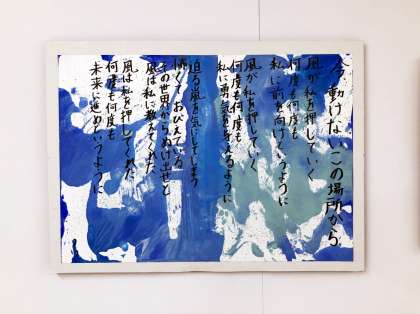 今動けないこの場所から
風が私を押していく
何度も何度も
私に前を向けというように
風が私を押していく
何度も何度も
私に勇気を与えるように
迫る嵐を気にしてしまう
怖くておびえている
その世界からぬけ出せと
風は私に教えてくれた
風は私を押してくれた
何度も何度も
未来に進めというように